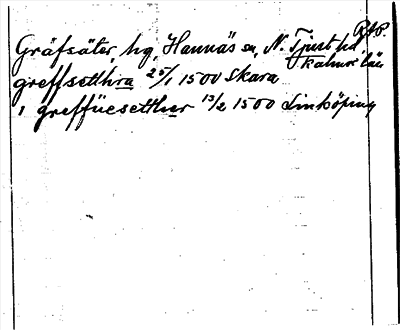 RAP.
Gräfsäter, hg, Hannäs sn, N. Tjust hd
Kalmar län
greffsetthra 25/1 1500 Skara
i greffüesetther 13/2 1500 Linköping